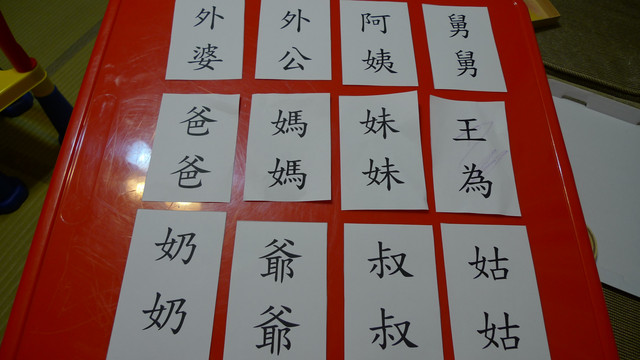 外婆
外公
阿姨
舅舅
爸爸
媽媽
妹妹
王為
奶奶
爺爺
叔叔
姑姑